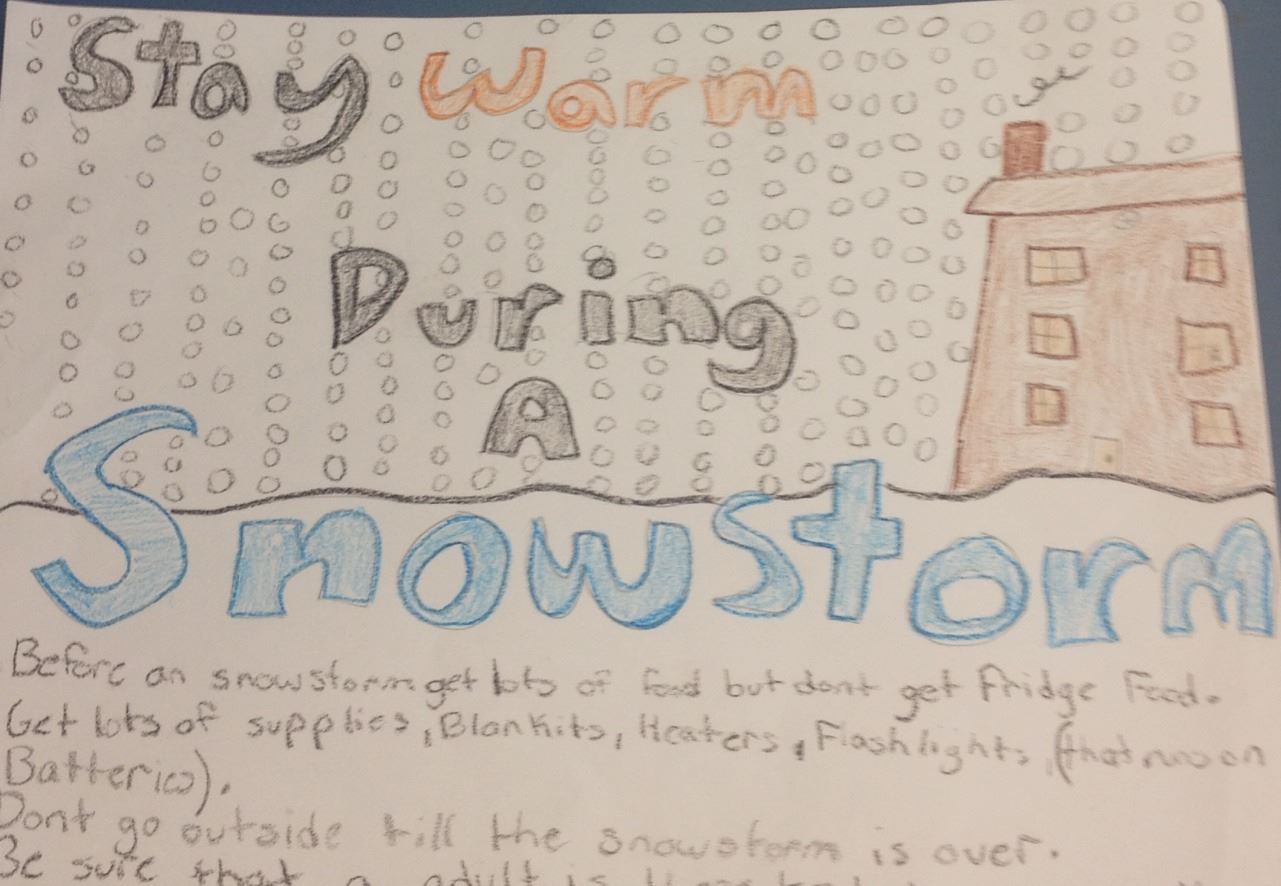 Stay Warm
During
A
Snowstorm
Before an snowstorm get lots of food but dont get Fridge Food.
Get lots of supplies, Blankits, Heaters, Flashlights, (that run on
Batteries).
Dont go outside till the snowstorm is over.
Be sure that a adult is